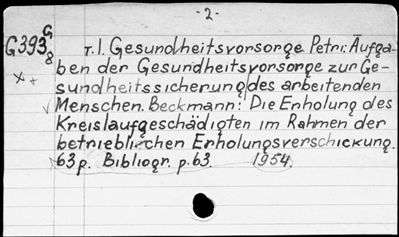 -2-
G393 G
8
т.1. Gesundheitsvorsorge. Petri: Aufga-
ben der Gesundheitsvorsorge zur Ge-
sundheitssicherung des arbeitenden
Menschen. Beckmann: Die Erholung des
Kreislaufgeschädigten im Rahmen der
betrieblichen Erholungsverschickung.
63p. Bibliogr. p.63. 1954.